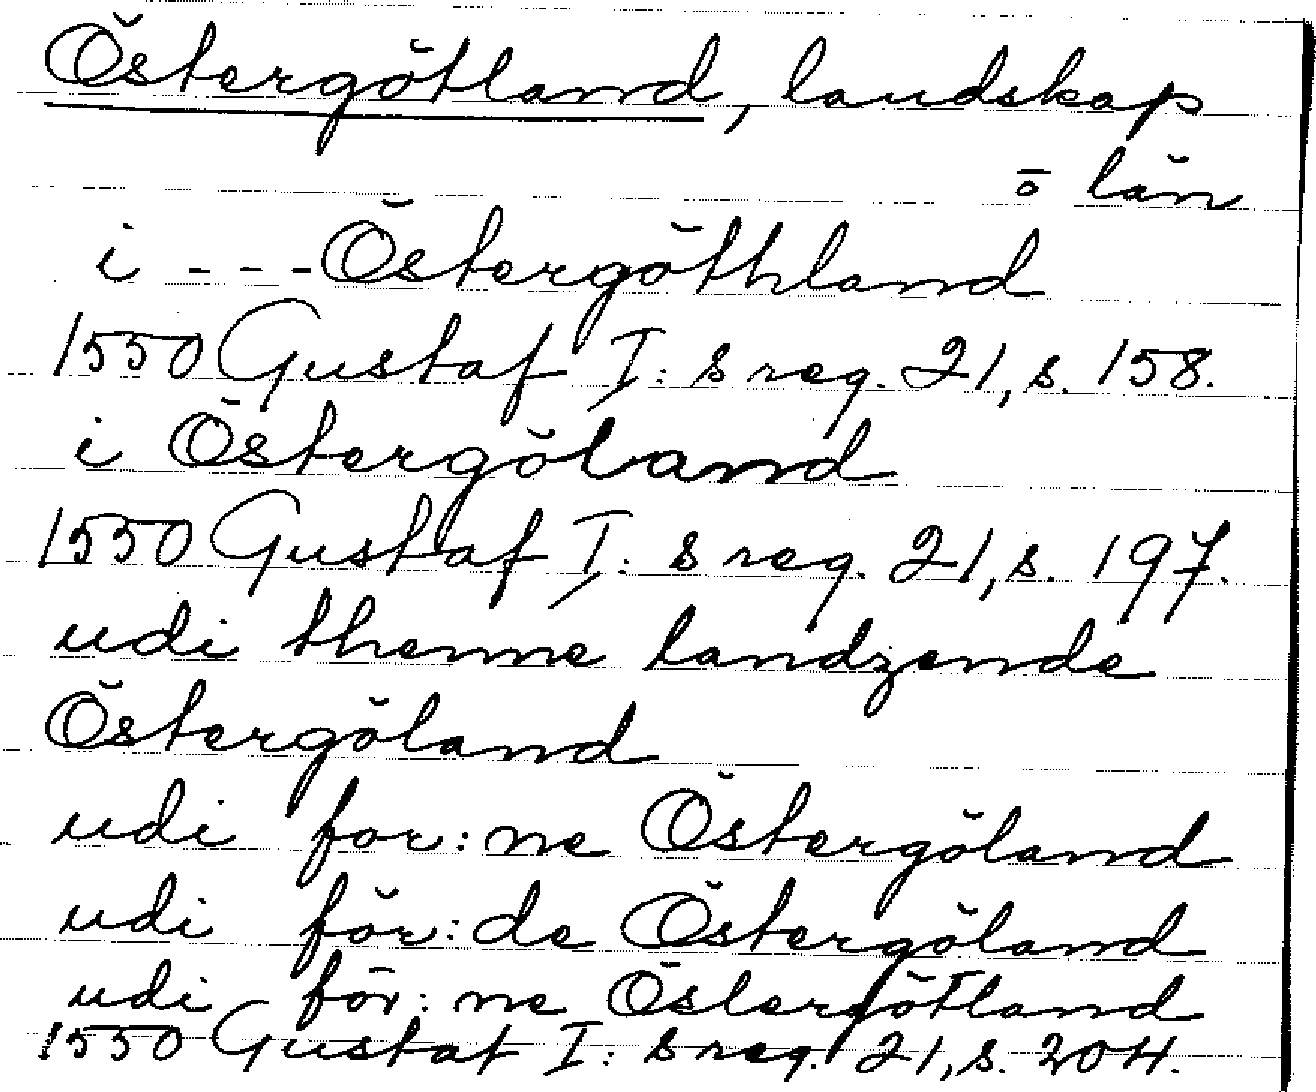 Östergötland, landskap
o län
i - - - Östergöthland
1550 Gustaf I:s reg. 21, s. 158.
i Östergöland
1550 Gustaf I:s reg. 21, s. 197.
udi thenne landzende
Östergöland
udi for:ne Östergöland
udi för:de Östergöland
udi för:ne Östergötland
1550 Gustaf I:s reg. 21, s. 204.